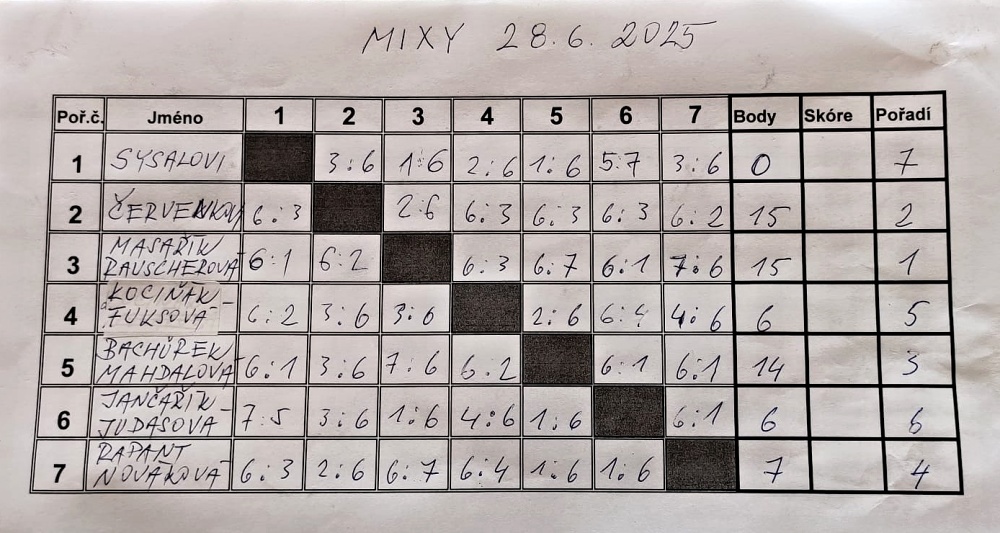 MIXY 28.6.2025
Poř.č. Jméno 1 2 3 4 5 6 7 Body Skóre Pořadí
1 SYSALOVI 3:6 1:6 2:6 1:6 5:7 3:6 0 7
2 ČERVENKOVI 6:3 2:6 6:3 6:3 6:3 6:2 15 2
3 MASAŘÍK RAUSCHEROVÁ 6:1 6:2 6:3 6:7 6:1 7:6 15 1
4 KOCIŇÁK - FUKSOVÁ 6:2 3:6 3:6 2:6 6:4 4:6 6 5
5 BACHŮREK MAHDALOVÁ 6:1 3:6 7:6 6:2 6:1 6:1 14 3
6 JANČAŘÍK - JUDASOVÁ 7:5 3:6 1:6 4:6 1:6 6:1 6 6
7 RAPANT NOVÁKOVÁ 6:3 2:6 6:7 6:4 1:6 1:6 7 4